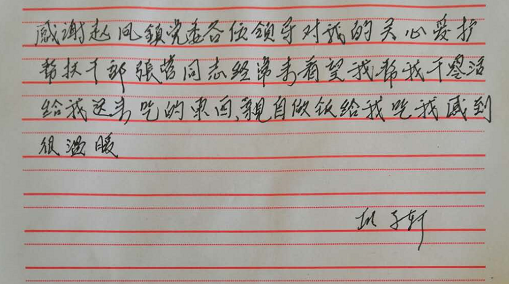 感谢赵凤镇党委各位领导对我的关心爱护
帮扶干部张营同志经常来看望我帮我干零活
给我送来吃的东西、亲自做饭给我吃我感到
很温暖
子轩